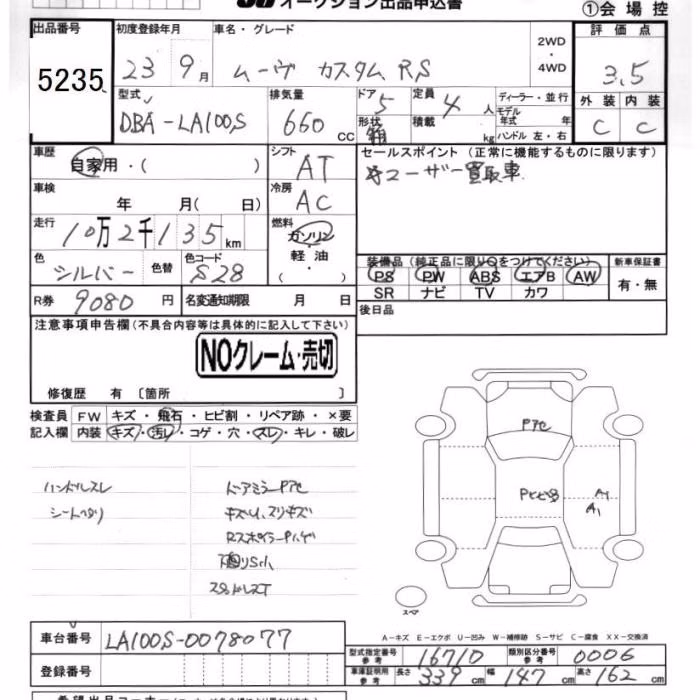 オークション出品申込書 ①会場控
出品番号 初度登録年月 車名・グレード 2WD・4WD 評価点
5235 23 9月 ムーヴ カスタム RS 3.5
型式 排気量 ドア 5 定員 4人 ディーラー・並行 外装 内装
DBA-LA100S 660CC 形状 箱 積載 kg モデル年式 年 ハンドル 左・右 C C
車歴 自家用・( ) シフト AT セールスポイント（正常に機能するものに限ります）
車検 年 月( 日) 冷房 AC ユーザー買取車
走行 10万2千135km 燃料 ガソリン 軽油・( )
色 シルバー 色替 色コード S28 装備品（純正品に限り○をつけてください） 新車保証書
PS PW ABS エアB AW 有・無
SR ナビ TV カワ
R券 9080円 名変通知期限 月 日 後日品
注意事項申告欄（不具合内容等は具体的に記入して下さい）
NOクレーム・売切
修復歴 有〔箇所 〕
検査員 FW キズ・飛石・ヒビ割・リペア跡・×要
記入欄 内装 キズ・汚レ・コゲ・穴・スレ・キレ・破レ
ハンドルスレ ドアミラーPアセ
シートヘタリ キズU、スリキズ
RスポイラーPハゲ
下廻りS小
スタッドレスT
Pアセ
A1
A1
スペア
A-キズ E-エクボ U-凹み W-補修跡 S-サビ C-腐食 XX-交換済
車台番号 LA100S-0078077
登録番号
型式指定番号 参考 16710 類別区分番号 参考 0006
車庫証明用 参考 長さ 339cm 幅 147cm 高さ 162cm
希望出品コーナー